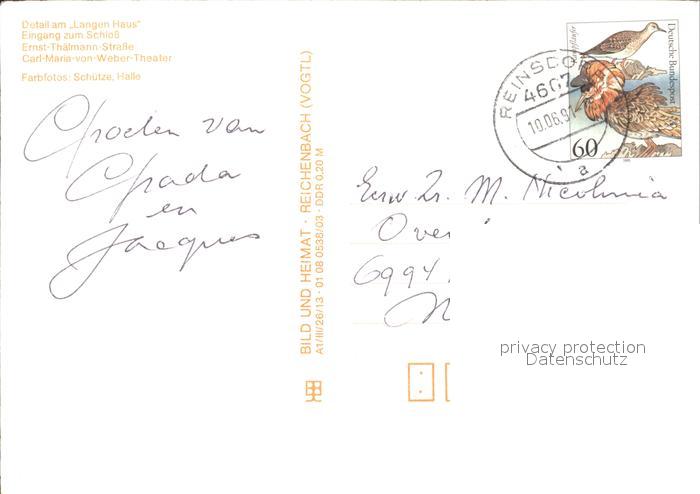 Detail am „Langen Haus"
Eingang zum Schloß
Ernst-Thälmann-Straße
Carl-Maria-von-Weber-Theater
Farbfotos: Schütze, Halle
Groeten van
en
Jacques
BILD UND HEIMAT · REICHENBACH (VOGTL)
A1/III/26/13 · 01 08 0538/03 · DDR 0,20 M
Deutsche Bundespost
60
REINSDO
4607
10.06.91
a
M. Nicolinia
Over
6994
privacy protection
Datenschutz